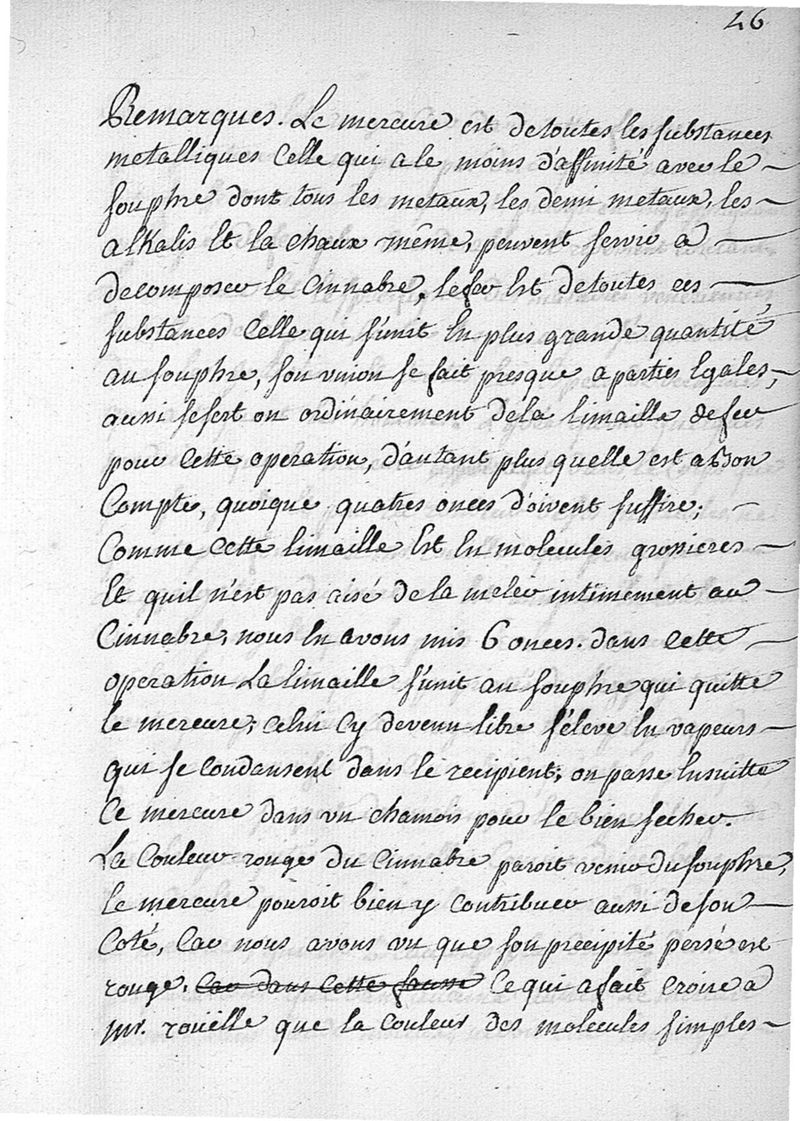 26
Remarques. Le mercure est de toutes les substances
metalliques Celle qui a le moins d'affinité avec le
souphre dont tous les metaux, les demi metaux, les
alKalis Et la chaux même, peuvent servir a
decomposer le Cinnabre, le fer Est de toutes ces
substances Celle qui s'unit En plus grande quantité
au souphre, son union se fait presque a parties Egales,
aussi se sert on ordinairement de la limaille de fer
pour Cette operation, d'autant plus quelle est a Bon
Compte, quoique quatres onces doivent suffire;
Comme Cette limaille Est En molecules grossieres
Et quil n'est pas aisé de la meler intimement au
Cinnabre, nous En avons mis 6 onces. dans Cette
operation La limaille s'unit au souphre qui quitte
le mercure; celui Cy devenu libre s'éleve En vapeurs
qui se condansent dans le recipient; on passe Ensuitte
Ce mercure dans un chamois pour le bien secher.
La Couleur rouge du Cinnabre paroit venir du souphre,
le mercure pouroit bien y Contribuer aussi de son
Coté, Car nous avons vu que son precipité persé est
rouge. Car dans Cette fausse Ce qui a fait croire a
mr. roüelle que la Couleur des molecules simples